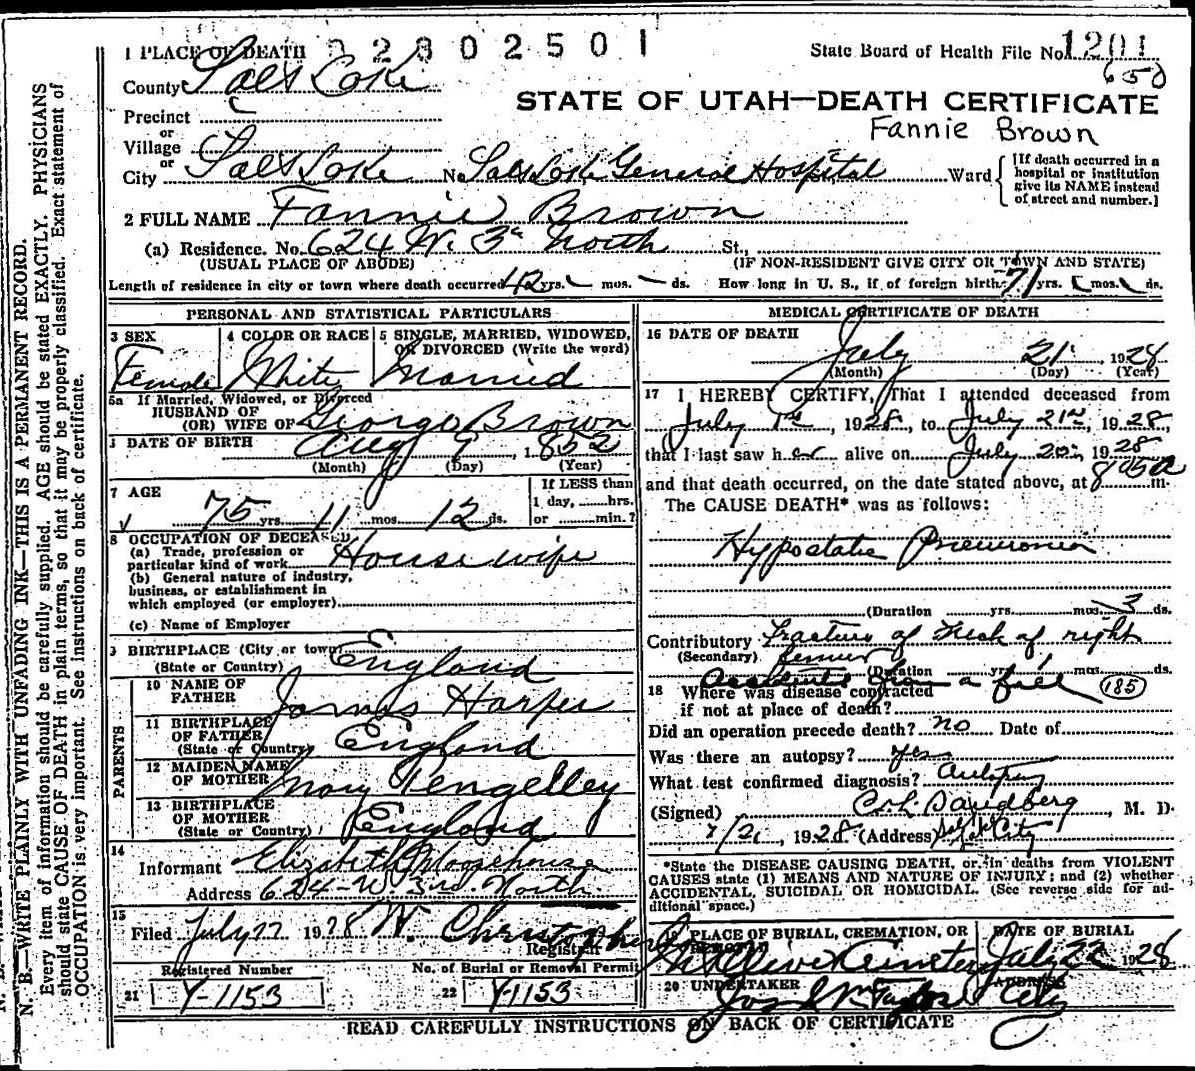 1 PLACE OF DEATH 02802501 State Board of Health File No. 1201
County Salt Lake 650
STATE OF UTAH—DEATH CERTIFICATE
Precinct
Fannie Brown
or
Village
or
City Salt Lake No. Salt Lake General Hospital Ward [If death occurred in a hospital or institution give its NAME instead of street and number.]
2 FULL NAME Fannie Brown
(a) Residence. No. 624 W. 3rd North St.,
(USUAL PLACE OF ABODE) (IF NON-RESIDENT GIVE CITY OR TOWN AND STATE)
Length of residence in city or town where death occurred yrs. mos. ds. How long in U. S., if of foreign birth 71 yrs. mos. ds.
PERSONAL AND STATISTICAL PARTICULARS
3 SEX 4 COLOR OR RACE 5 SINGLE, MARRIED, WIDOWED,
OR DIVORCED (Write the word)
Female White Married
5a If Married, Widowed, or Divorced
HUSBAND OF
(OR) WIFE OF George Brown
DATE OF BIRTH Aug 9, 1852
(Month) (Day) (Year)
7 AGE If LESS than
1 day, hrs.
75 yrs. 11 mos. 12 ds. or min.?
8 OCCUPATION OF DECEASED
(a) Trade, profession or
particular kind of work Housewife
(b) General nature of industry,
business, or establishment in
which employed (or employer)
(c) Name of Employer
9 BIRTHPLACE (City or town)
(State or Country) England
PARENTS
10 NAME OF
FATHER James Harper
11 BIRTHPLACE
OF FATHER England
(State or Country)
12 MAIDEN NAME
OF MOTHER Mary Pengelley
13 BIRTHPLACE
OF MOTHER England
(State or Country)
14
Informant Elizabeth Moorehouse
Address 624-W 3rd North
15
Filed July 22 1928 W. Christopherson
Registrar
Registered Number No. of Burial or Removal Permit
21 Y-1153 22 Y-1153
MEDICAL CERTIFICATE OF DEATH
16 DATE OF DEATH
July 21, 1928
(Month) (Day) (Year)
17 I HEREBY CERTIFY, That I attended deceased from
July 1st, 1928, to July 21st, 1928,
that I last saw her alive on July 20, 1928
and that death occurred, on the date stated above, at 805a m.
The CAUSE DEATH* was as follows:
Hypostatic Pneumonia
(Duration yrs. mos. 3 ds.
Contributory Fracture of neck of right
(Secondary) femur (Duration yrs. 1 mos. ds.
Accident from a fall 185
18 Where was disease contracted
if not at place of death?
Did an operation precede death? no Date of
Was there an autopsy? yes
What test confirmed diagnosis? Autopsy
(Signed) M. D.
7/21, 1928 (Address) City
*State the DISEASE CAUSING DEATH, or, in deaths from VIOLENT
CAUSES state (1) MEANS AND NATURE OF INJURY; and (2) whether
ACCIDENTAL, SUICIDAL OR HOMICIDAL. (See reverse side for ad-
ditional space.)
19 PLACE OF BURIAL, CREMATION, OR DATE OF BURIAL
REMOVAL
Mt Olivet Cemetery July 22 1928
20 UNDERTAKER ADDRESS
Taylor City
READ CAREFULLY INSTRUCTIONS ON BACK OF CERTIFICATE
N. B.—WRITE PLAINLY WITH UNFADING INK—THIS IS A PERMANENT RECORD.
Every item of information should be carefully supplied. AGE should be stated EXACTLY. PHYSICIANS
should state CAUSE OF DEATH in plain terms, so that it may be properly classified. Exact statement of
OCCUPATION is very important. See instructions on back of certificate.